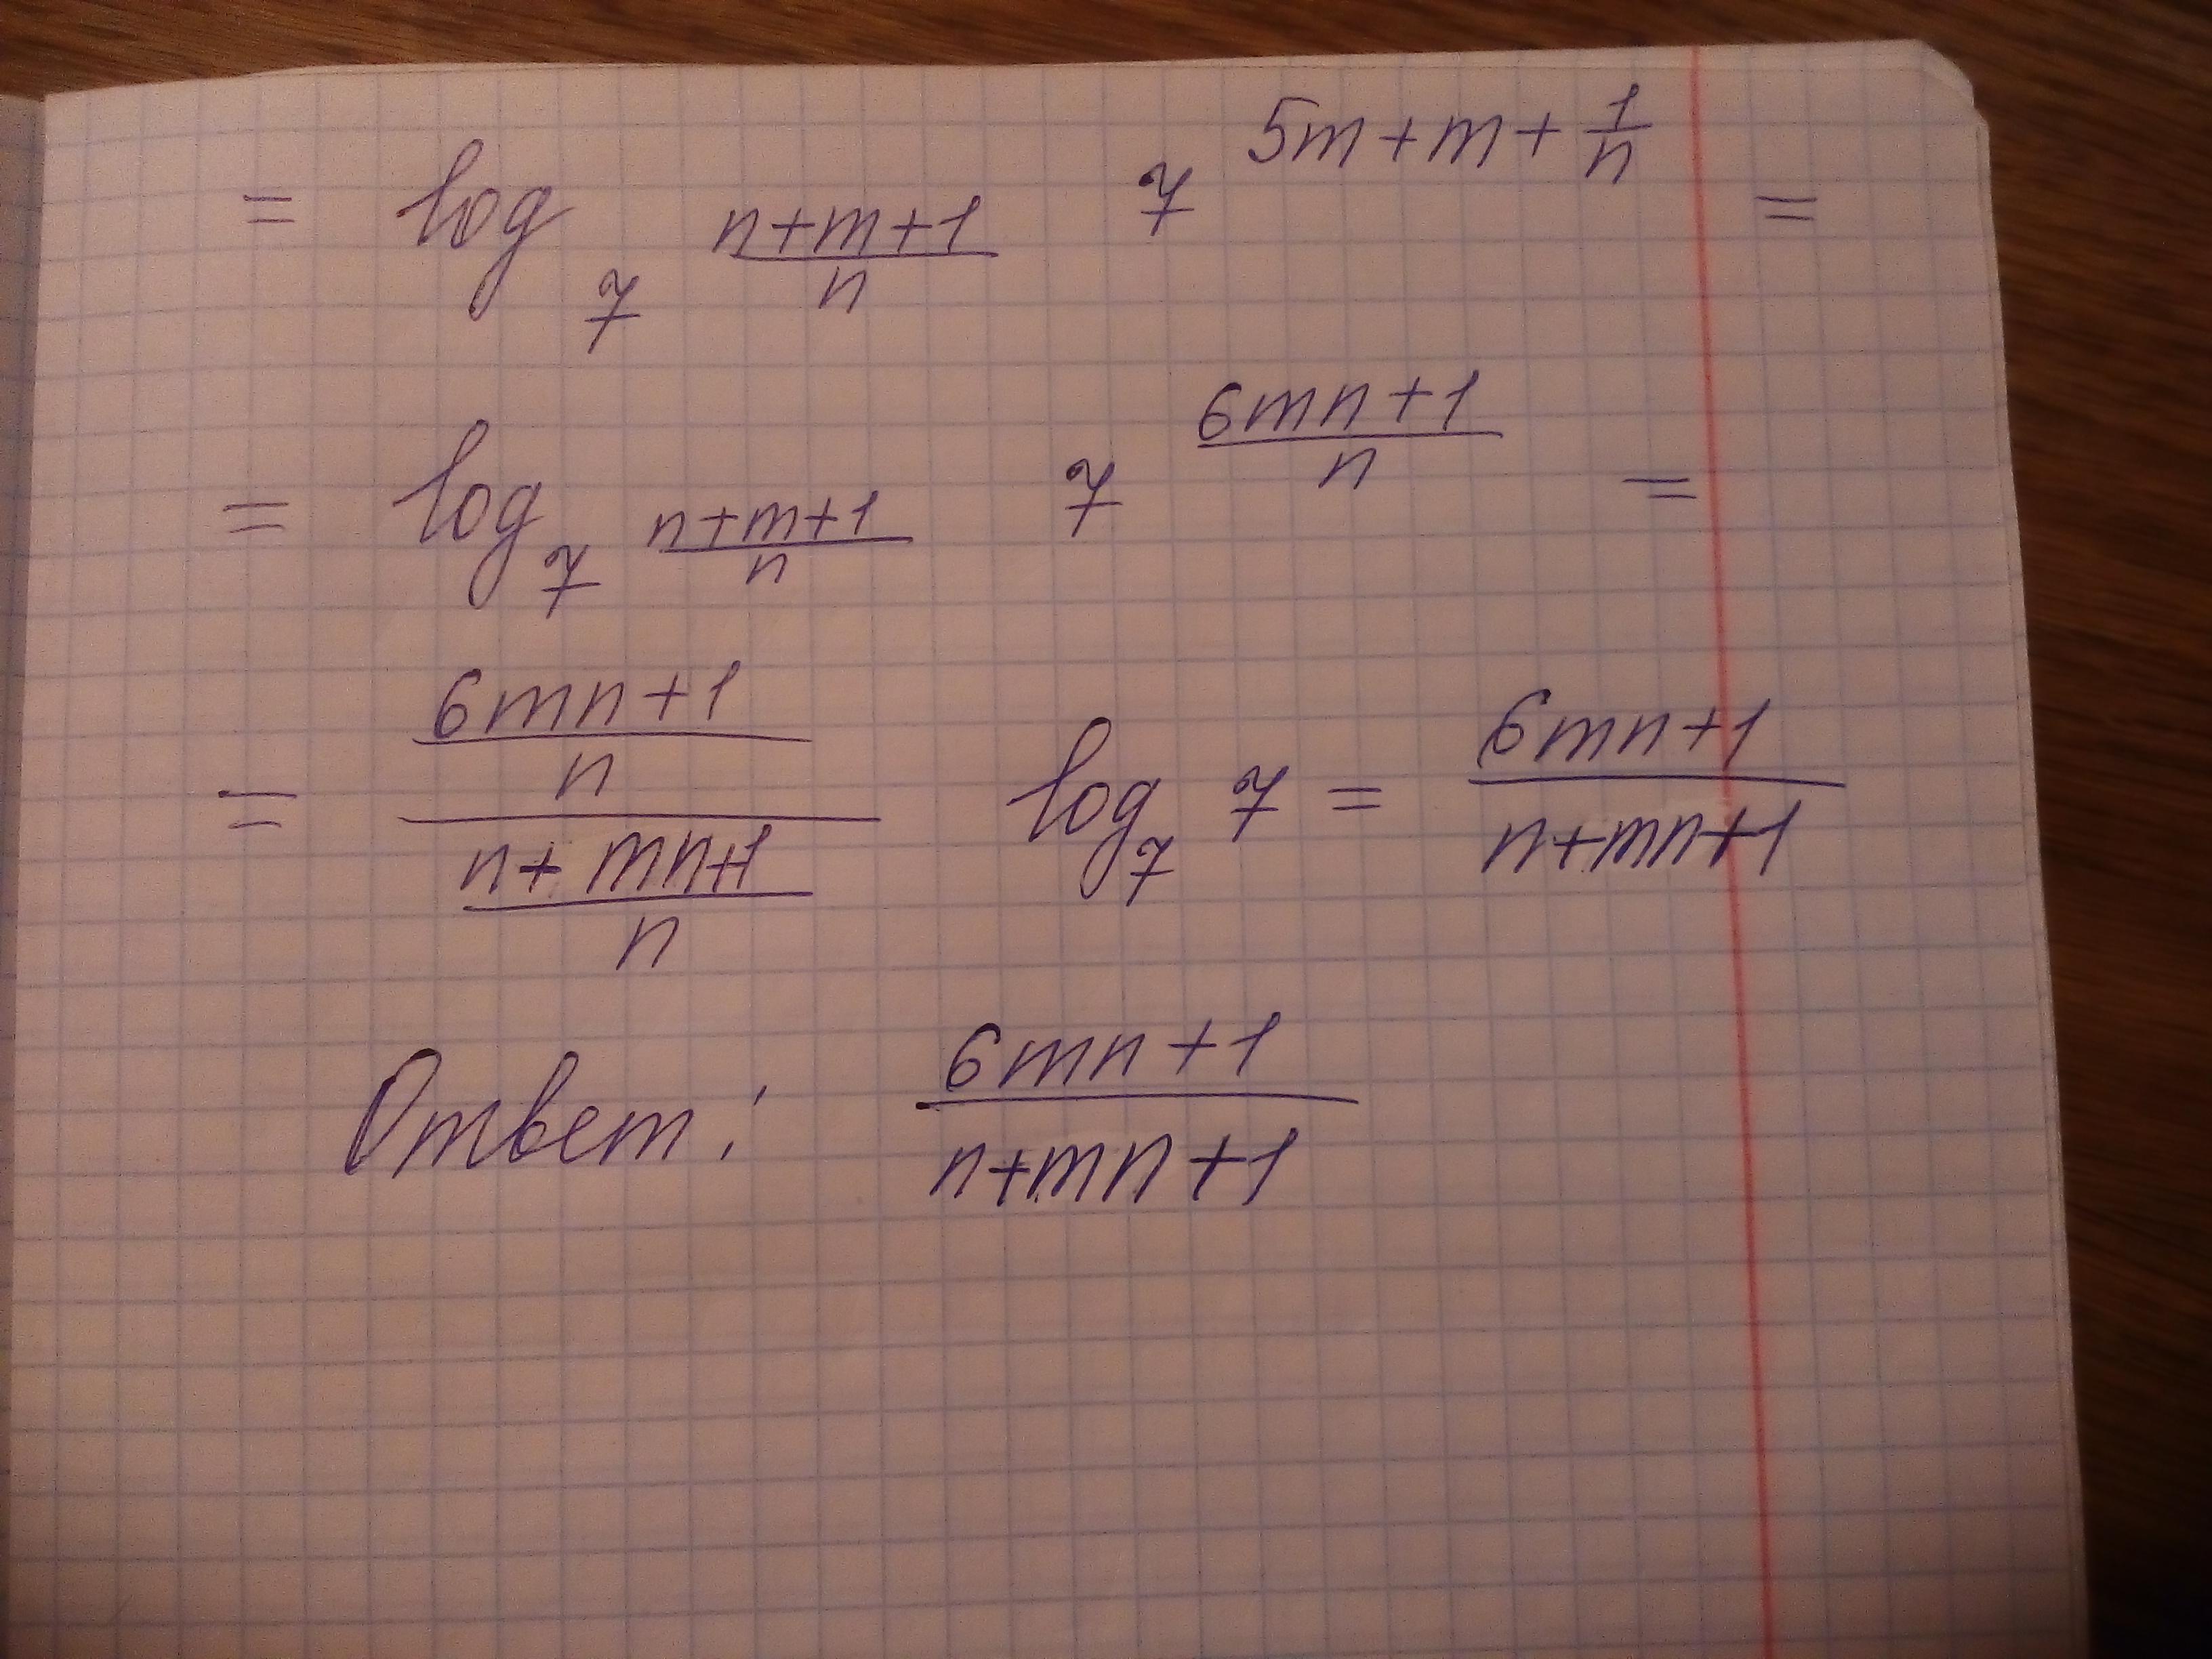 = log_{7^{\frac{n+m+1}{n}}} 7^{5m+m+\frac{1}{n}} =
= log_{7^{\frac{n+m+1}{n}}} 7^{\frac{6mn+1}{n}} =
= \frac{\frac{6mn+1}{n}}{\frac{n+mn+1}{n}} log_7 7 = \frac{6mn+1}{n+mn+1}
Ответ: \frac{6mn+1}{n+mn+1}